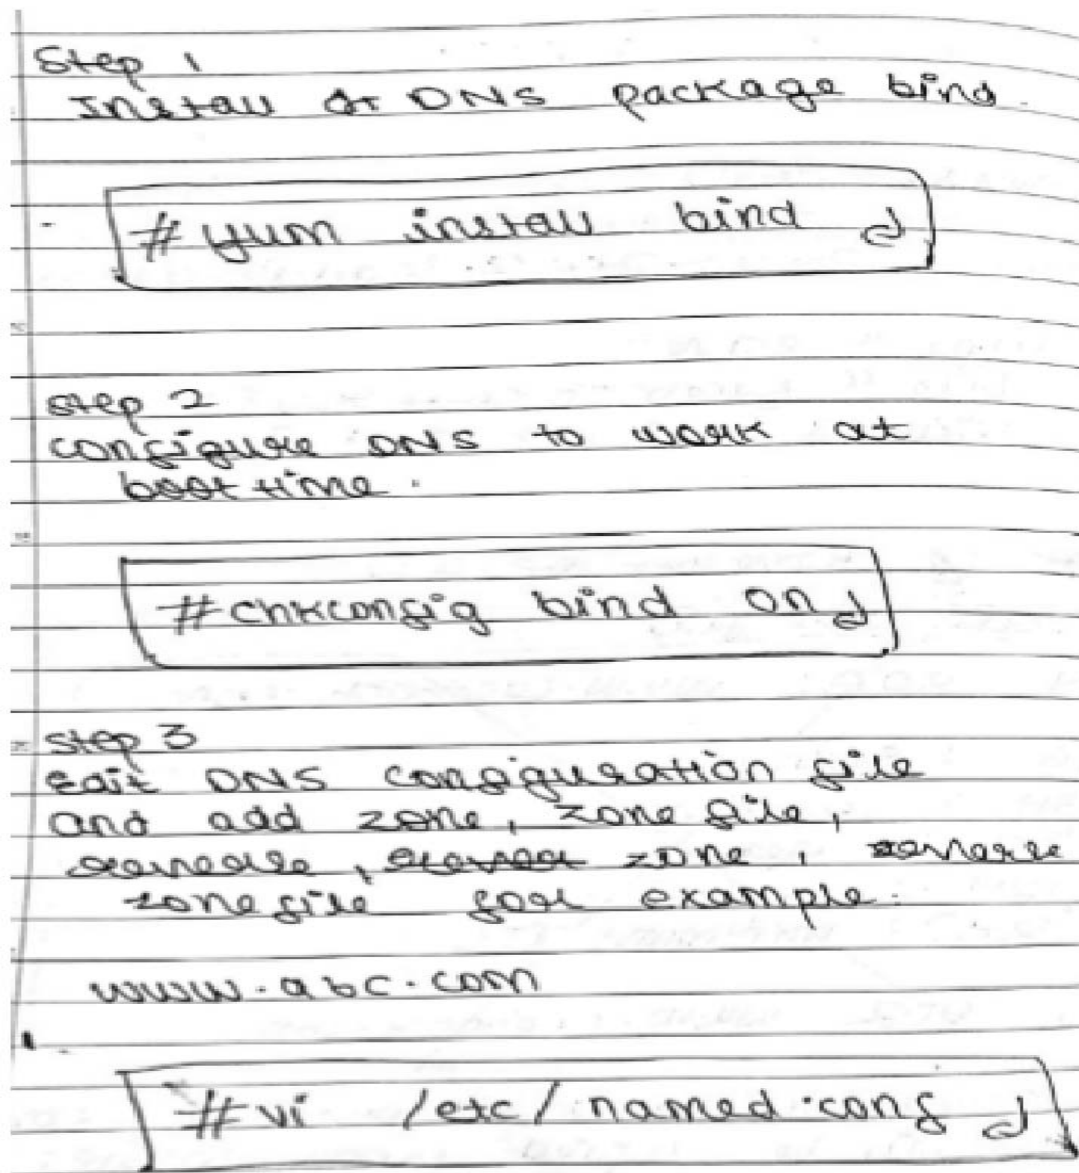 Step 1
Install DNS package bind.
#yum install bind ↲
step 2
configure DNS to work at
boot time.
#chkconfig bind on ↲
step 3
edit DNS configuration file
and add zone, zone file,
reverse, zone, reverse
zone file for example.
www.abc.com
#vi /etc/named.conf ↲